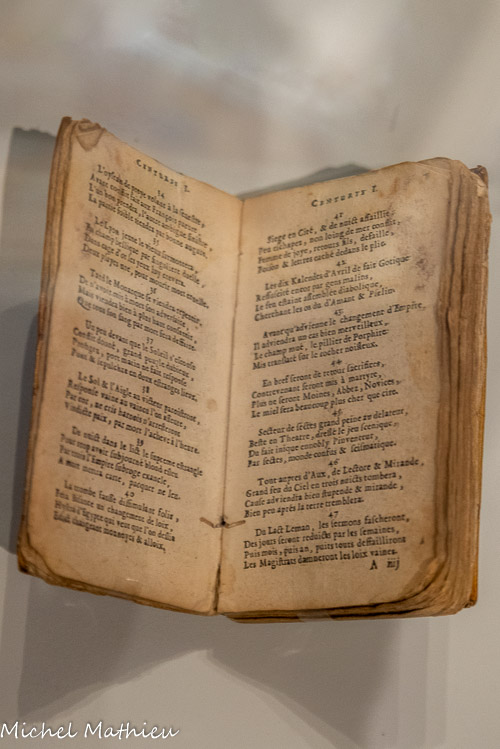 CENTURIE I.
34
L'oyseau de proye volant à la fenestre,
Avant conflit fait aux François parure
L'un bon prendra, l'autre ambigue sinistre,
La partie foible tiendra par bonne augure.
35
Le Lyon jeune le vieux surmontera,
En champ bellique par singulier duelle,
Dans cage d'or les yeux luy crevera,
Deux playes une, puis mourir mort cruelle.
36
Tard le Monarque se viendra repentir,
De n'avoir mis à mort son adversaire,
Mais viendra bien à plus haut consentir,
Que tout son sang par mort fera deffaire.
37
Un peu devant que le Soleil s'esconse
Conflit donné, grand peuple dubiteux,
Profligez, port marin ne fait response,
Pont & sepulchre en deux estranges lieux.
38
Le Sol & l'Aigle au victeur paroistront,
Response vaine au vaincu l'on asseure,
Par cor, ne cris harnois n'arresteront
Vindicte paix, par mort l'acheve à l'heure.
39
De nuict dans le lict le supreme estrangle
Pour trop avoir subjourné blond esleu.
Par trois l'Empire subroge exancle,
A mort mettra carte, pacquet ne leu.
40
La trombe fausse dissimulant folie,
Fera Bisance un changement de loix,
Hystra d'Egypte qui veut que l'on deslie
Edict changeant monnoyes & alloix.
CENTURIE I.
41
Siege en Cité, & de nuict assaillie,
Peu eschapez, non loing de mer conflis,
Femme de joye, retours fils, defaille,
Poison & lettres caché dedans le plic.
42
Les dix Kalendes d'Avril de fait Gotique
Ressuscité encor par gens malins,
Le feu estaint assemblée diabolique,
Cherchant les os du d'Amant & Pselin.
43
Avant qu'advienne le changement d'Empire,
Il adviendra un cas bien merveilleux,
Le champ mué, le pillier de Porphire
Mis translaté sur le rocher noilleux.
44
En bref seront de retour sacrifices,
Contrevenant seront mis à martyre,
Plus ne seront Moines, Abbez, Novices,
Le miel sera beaucoup plus cher que cire.
45
Secteur de sectes grand peine au delateur,
Beste en Theatre, dresse le jeu scenique,
Du fait inique ennobly l'inventeur,
Par sectes, monde confus & scismatique.
46
Tout aupres d'Aux, de Lectore & Mirande,
Grand feu du Ciel en trois nuicts tombera,
Cause adviendra bien stupende & mirande,
Bien peu après la terre tremblera.
47
Du Lact Leman, les sermons fascheront,
Des jours seront reduicts par les semaines,
Puis mois, puis an, puits tous deffailliront
Les Magistrats damneront les loix vaines.
A iiij
Michel Mathieu